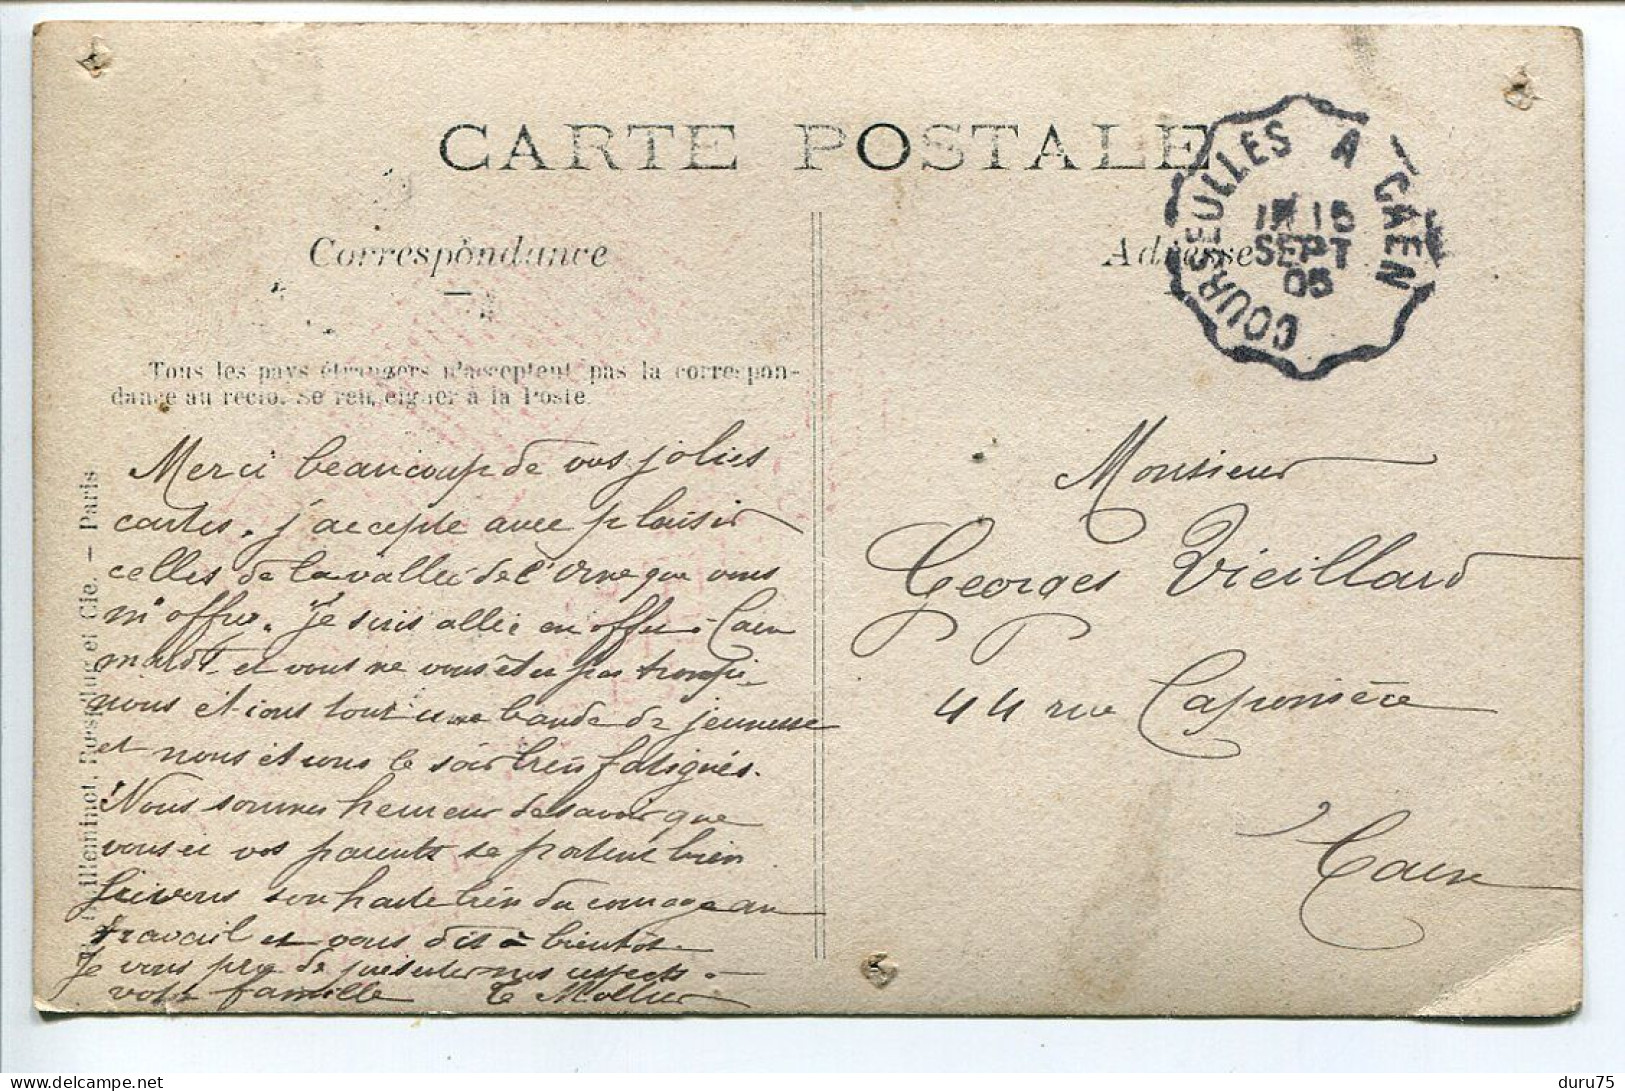 CARTE POSTALE
Correspondance
Adresse
COURSEULLES A CAEN
15
SEPT
05
Tous les pays étrangers n'acceptent pas la correspon-
dance au recto. Se renseigner à la Poste.
Guilleminot, Bœspflug et Cie. — Paris
Merci beaucoup de vos jolies
cartes. j'accepte avec plaisir
celles de la vallée de l'Orne que vous
m'offrez. Je suis allée en effet à Caen
mardi et vous ne vous êtes pas trompé
nous étions tout une bande de jeunesse
et nous étions le soir bien fatigués.
Nous sommes heureux de savoir que
vous et vos parents se portent bien
Je vous souhaite bien du courage au
travail et vous dit à bientôt.
Je vous prie de présenter mes respects à
votre famille
Monsieur
Georges Vieillard
44 rue Caponière
Caen
duru75